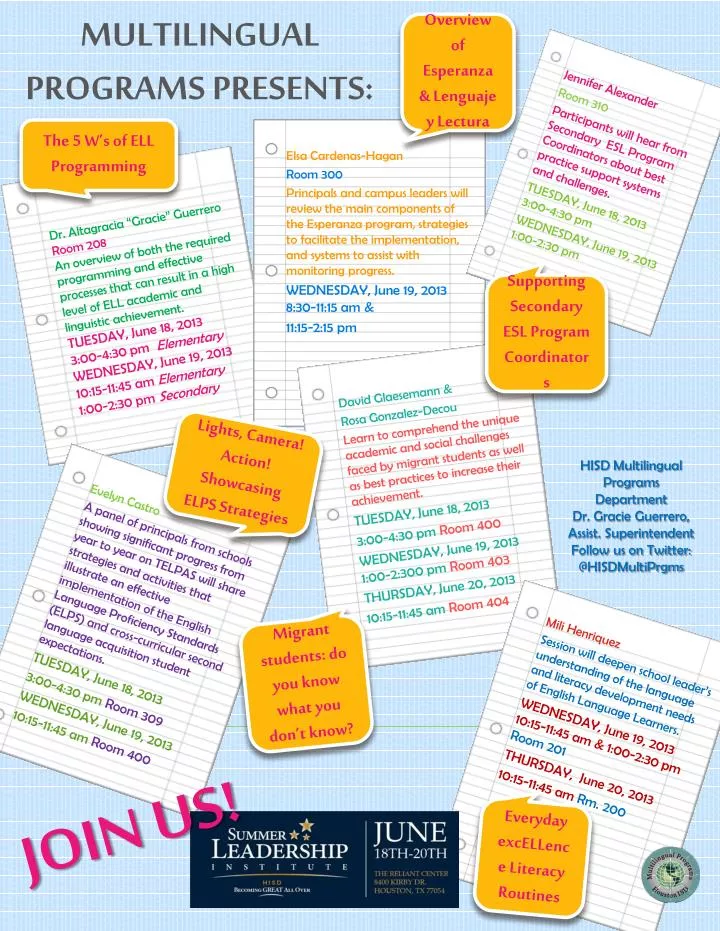 MULTILINGUAL
PROGRAMS PRESENTS:
Overview
of
Esperanza
& Lenguaje
y Lectura
The 5 W's of ELL
Programming
Dr. Altagracia “Gracie” Guerrero
Room 208
An overview of both the required
programming and effective
processes that can result in a high
level of ELL academic and
linguistic achievement.
TUESDAY, June 18, 2013
3:00-4:30 pm Elementary
WEDNESDAY, June 19, 2013
10:15-11:45 am Elementary
1:00-2:30 pm Secondary
Elsa Cardenas-Hagan
Room 300
Principals and campus leaders will
review the main components of
the Esperanza program, strategies
to facilitate the implementation,
and systems to assist with
monitoring progress.
WEDNESDAY, June 19, 2013
8:30-11:15 am &
11:15-2:15 pm
Jennifer Alexander
Room 310
Participants will hear from
Secondary ESL Program
Coordinators about best
practice support systems
and challenges.
TUESDAY, June 18, 2013
3:00-4:30 pm
WEDNESDAY, June 19, 2013
1:00-2:30 pm
Supporting
Secondary
ESL Program
Coordinator
s
Lights, Camera!
Action!
Showcasing
ELPS Strategies
Evelyn Castro
A panel of principals from schools
showing significant progress from
year to year on TELPAS will share
strategies and activities that
illustrate an effective
implementation of the English
Language Proficiency Standards
(ELPS) and cross-curricular second
language acquisition student
expectations.
TUESDAY, June 18, 2013
3:00-4:30 pm Room 309
WEDNESDAY, June 19, 2013
10:15-11:45 am Room 400
David Glaesemann &
Rosa Gonzalez-Decou
Learn to comprehend the unique
academic and social challenges
faced by migrant students as well
as best practices to increase their
achievement.
TUESDAY, June 18, 2013
3:00-4:30 pm Room 400
WEDNESDAY, June 19, 2013
1:00-2:300 pm Room 403
THURSDAY, June 20, 2013
10:15-11:45 am Room 404
Migrant
students: do
you know
what you
don't know?
HISD Multilingual
Programs
Department
Dr. Gracie Guerrero,
Assist. Superintendent
Follow us on Twitter:
@HISDMultiPrgms
Mili Henriquez
Session will deepen school leader's
understanding of the language
and literacy development needs
of English Language Learners.
WEDNESDAY, June 19, 2013
10:15-11:45 am & 1:00-2:30 pm
Room 201
THURSDAY, June 20, 2013
10:15-11:45 am Rm. 200
Everyday
excELLenc
e Literacy
Routines
JOIN US!
SUMMER
LEADERSHIP
INSTITUTE
HISD
BECOMING GREAT ALL OVER
JUNE
18TH-20TH
THE RELIANT CENTER
8400 KIRBY DR.
HOUSTON, TX 77054
Multilingual Programs
Houston ISD